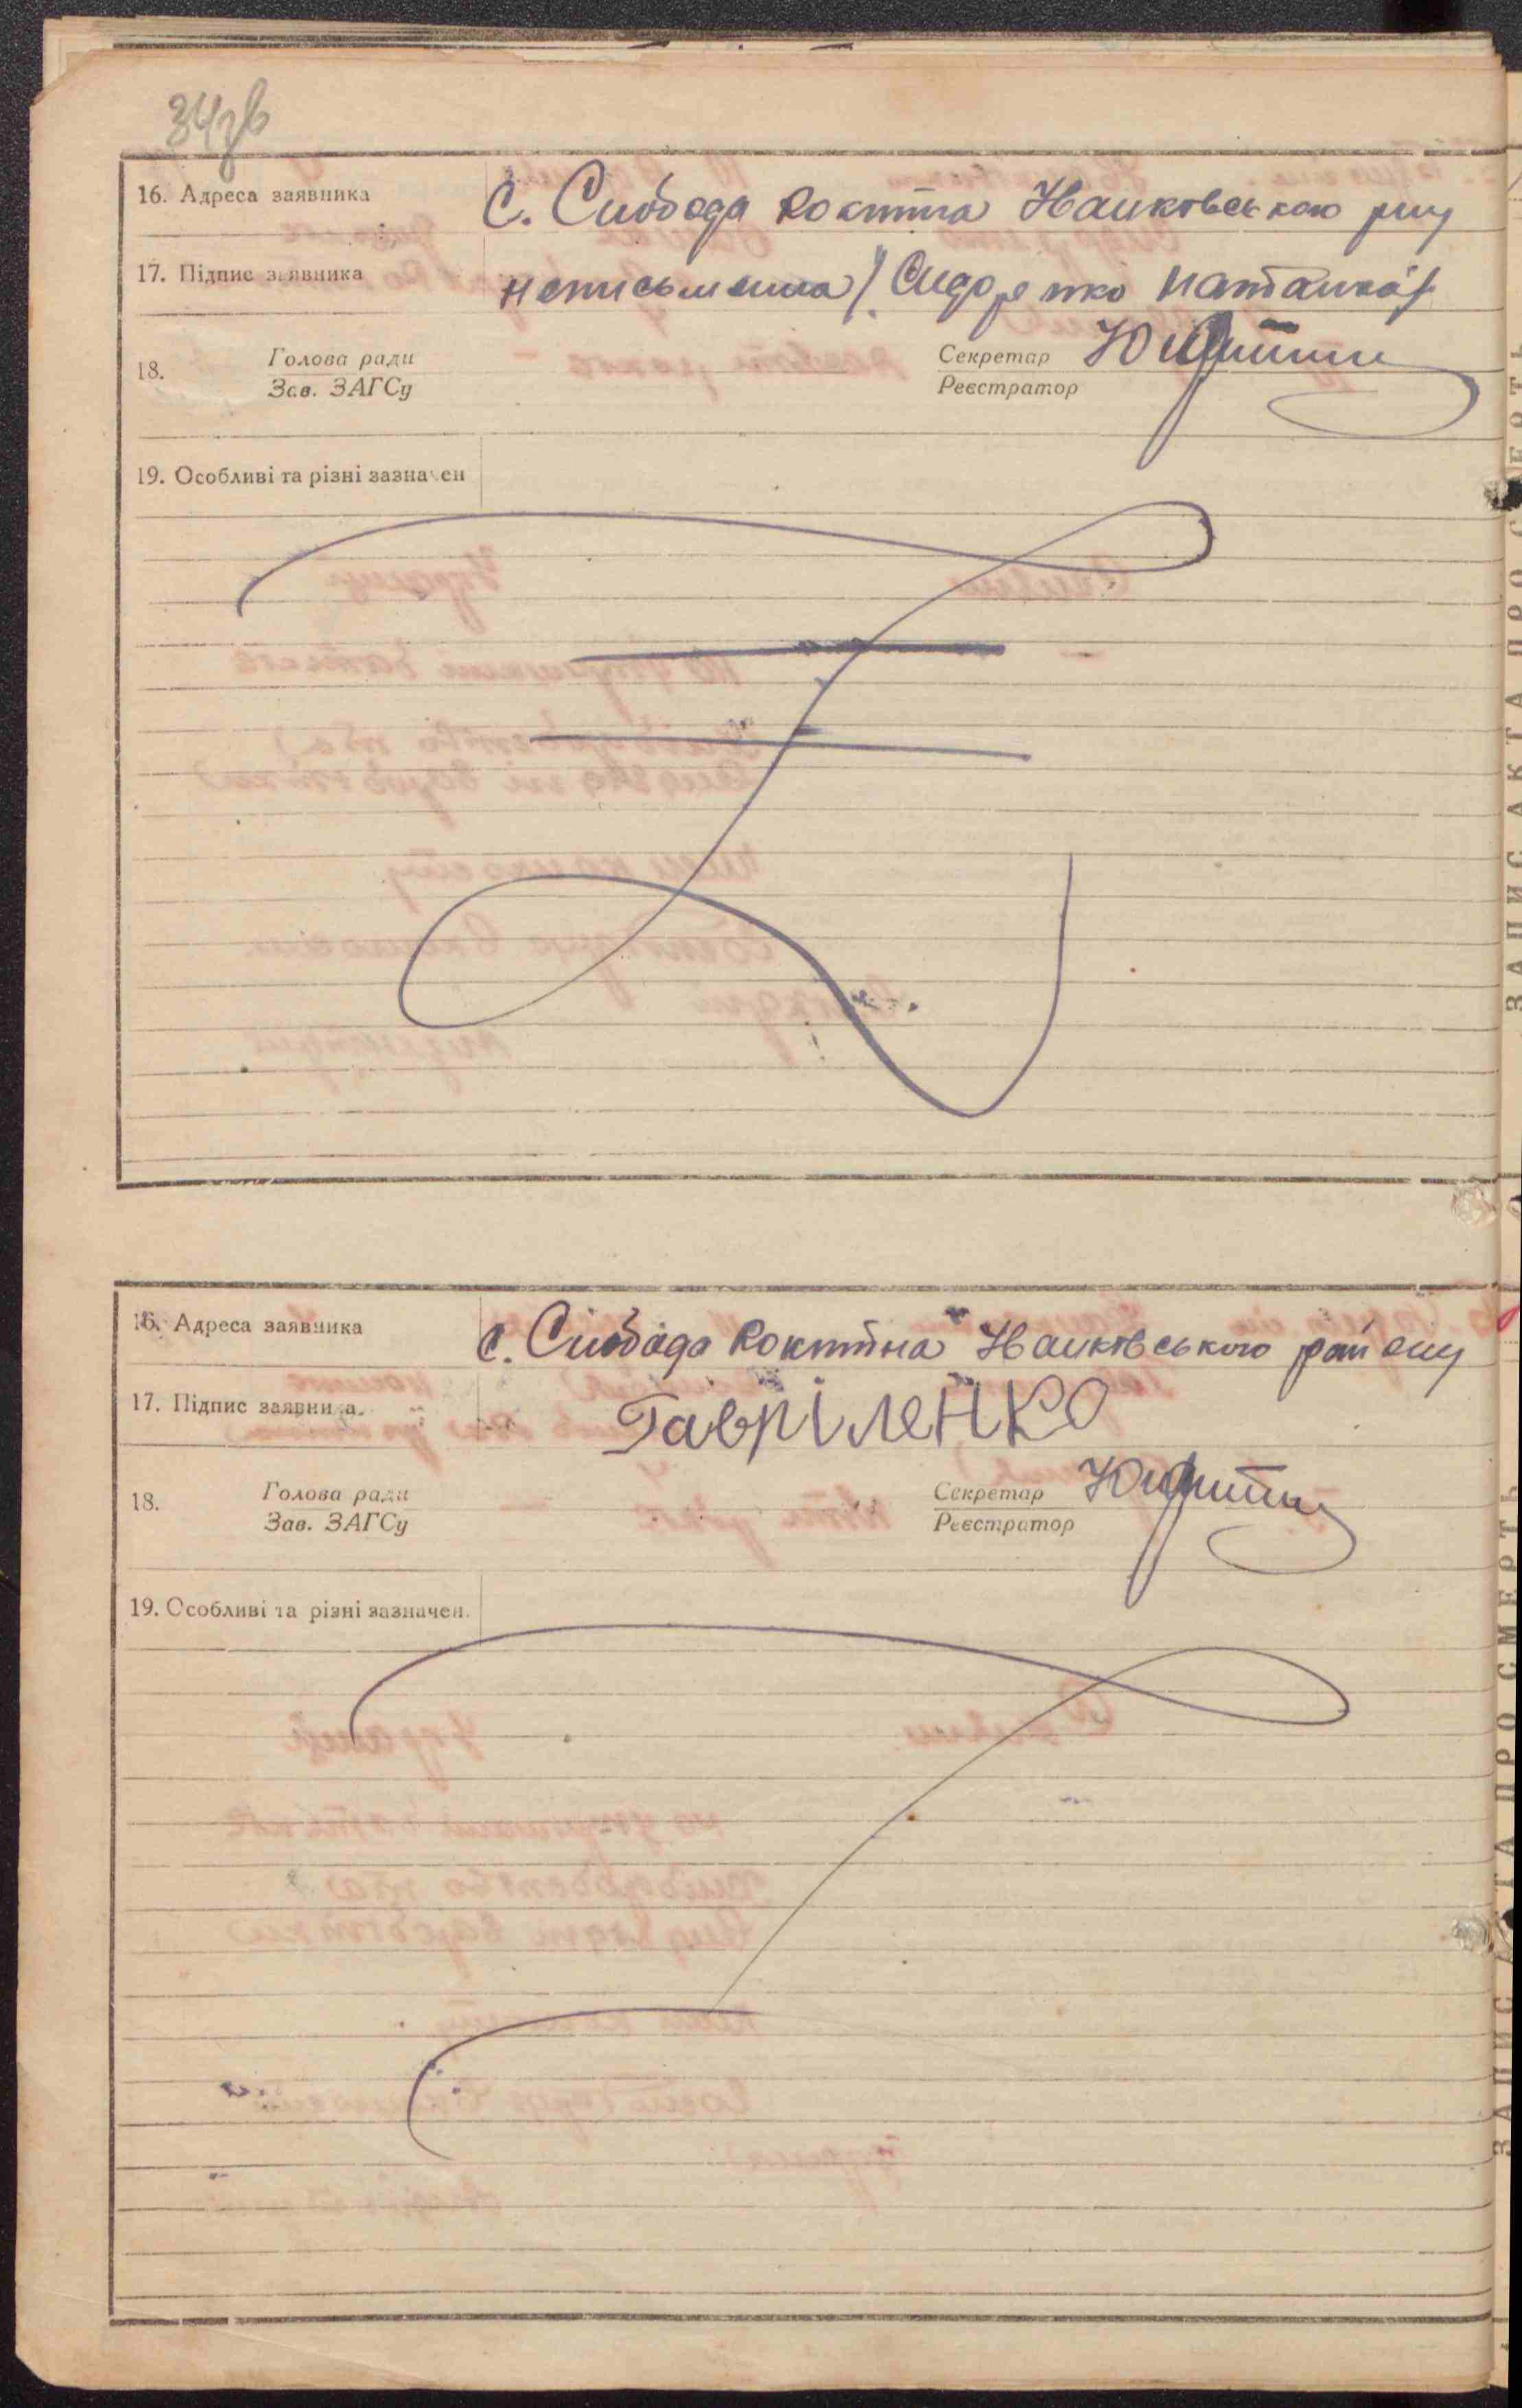 34зв
16. Адреса заявника С. Слобода Кокіпна Іванковського р-ну
17. Підпис заявника неписьменна / Сидоренко Наталка /
18. Голова ради Секретар
Зав. ЗАГСу Реєстратор
19. Особливі та різні зазначен
16. Адреса заявника с. Слобода Іванковського району
17. Підпис заявника. Гавріленко
18. Голова ради Секретар
Зав. ЗАГСу Реєстратор
19. Особливі та різні зазначен.
ЗАПИС АКТА ПРО СМЕРТЬ
ЗАПИС АКТА ПРО СМЕРТЬ